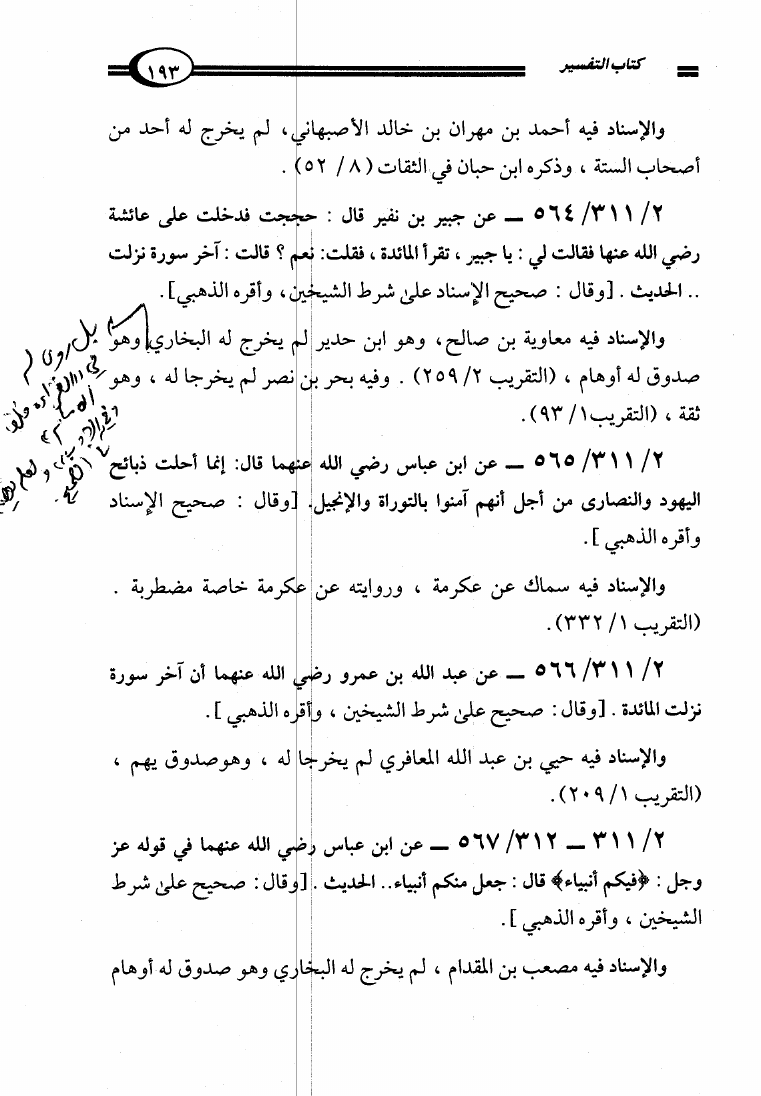 كتاب التفسير
١٩٣
والإسناد فيه أحمد بن مهران بن خالد الأصبهاني، لم يخرج له أحد من
أصحاب الستة ، وذكره ابن حبان في الثقات (٨/ ٥٢) .
٥٦٤/٣١١/٢ ــ عن جبير بن نفير قال : حججت فدخلت على عائشة
رضي الله عنها فقالت لي : يا جبير ، تقرأ المائدة ، فقلت: نعم ؟ قالت : آخر سورة نزلت
.. الحديث . [وقال : صحيح الإسناد على شرط الشيخين، وأقره الذهبي].
والإسناد فيه معاوية بن صالح، وهو ابن حدير لم يخرج له البخاري وهو
صدوق له أوهام ، (التقريب ٢٥٩/٢) . وفيه بحر بن نصر لم يخرجا له ، وهو
ثقة ، (التقريب٩٣/١).
بل روى له
في
٥٦٥/٣١١/٢ ــ عن ابن عباس رضي الله عنهما قال: إنما أحلت ذبائح
اليهود والنصارى من أجل أنهم آمنوا بالتوراة والإنجيل. [وقال : صحيح الإسناد
وأقره الذهبي ].
والإسناد فيه سماك عن عكرمة ، وروايته عن عكرمة خاصة مضطربة .
(التقريب ٣٣٢/١).
٥٦٦/٣١١/٢ ــ عن عبد الله بن عمرو رضي الله عنهما أن آخر سورة
نزلت المائدة . [وقال : صحيح على شرط الشيخين ، وأقره الذهبي ].
والإسناد فيه حيي بن عبد الله المعافري لم يخرجا له ، وهوصدوق يهم ،
(التقريب ٢٠٩/١).
٣١١/٢ ــ ٥٦٧/٣١٢ ــ عن ابن عباس رضي الله عنهما في قوله عز
وجل : ﴿فيكم أنبياء﴾ قال : جعل منكم أنبياء.. الحديث . [وقال : صحيح على شرط
الشيخين ، وأقره الذهبي ].
والإسناد فيه مصعب بن المقدام ، لم يخرج له البخاري وهو صدوق له أوهام